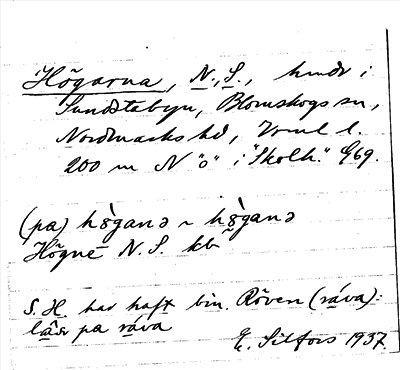 Högarna, N., S., hmdr i
Sundstabyn, Blomskogs sn,
Nordmarks hd, Vrml l.
200 m N "o" i "Skolh." Gbg.
(pa) hø̀gana ~ hø̀gana
Högne N. S. kb
S. H. har haft bin. Röven (ráva):
pa ráva
E. Silfors 1937.